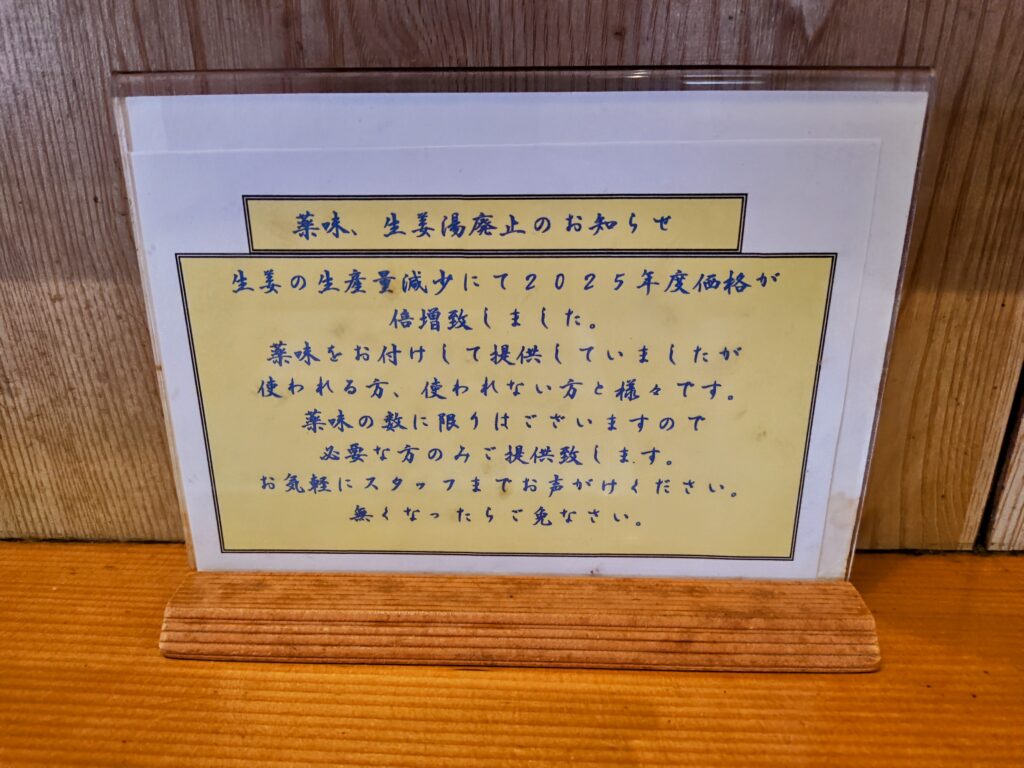 薬味、生姜湯廃止のお知らせ
生姜の生産量減少にて２０２５年度価格が
倍増致しました。
薬味をお付けして提供していましたが
使われる方、使われない方と様々です。
薬味の数に限りはございますので
必要な方のみご提供致します。
お気軽にスタッフまでお声がけください。
無くなったらご免なさい。